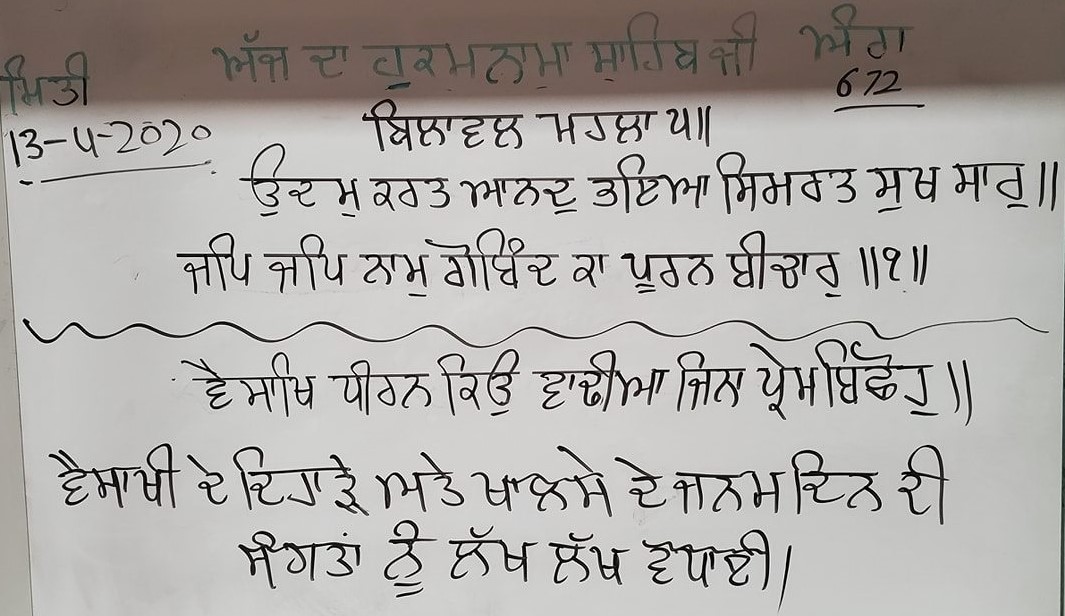 ਅੱਜ ਦਾ ਹੁਕਮਨਾਮਾ ਸਾਹਿਬ ਜੀ ਅੰਗ
ਮਿਤੀ 672
13-4-2020 ਬਿਲਾਵਲ ਮਹਲਾ ੫॥
ਉਦਮੁ ਕਰਤ ਆਨਦੁ ਭਇਆ ਸਿਮਰਤ ਸੁਖ ਸਾਰੁ॥
ਜਪਿ ਜਪਿ ਨਾਮੁ ਗੋਬਿੰਦ ਕਾ ਪੂਰਨ ਬੀਚਾਰੁ॥੧॥
ਵੈਸਾਖਿ ਧੀਰਨ ਕਿਉ ਵਾਢੀਆ ਜਿਨਾ ਪ੍ਰੇਮ ਬਿਛੋਹੁ॥
ਵੈਸਾਖੀ ਦੇ ਦਿਹਾੜੇ ਅਤੇ ਖਾਲਸੇ ਦੇ ਜਨਮ ਦਿਨ ਦੀ
ਸੰਗਤਾਂ ਨੂੰ ਲੱਖ ਲੱਖ ਵੋਧਾਈ।